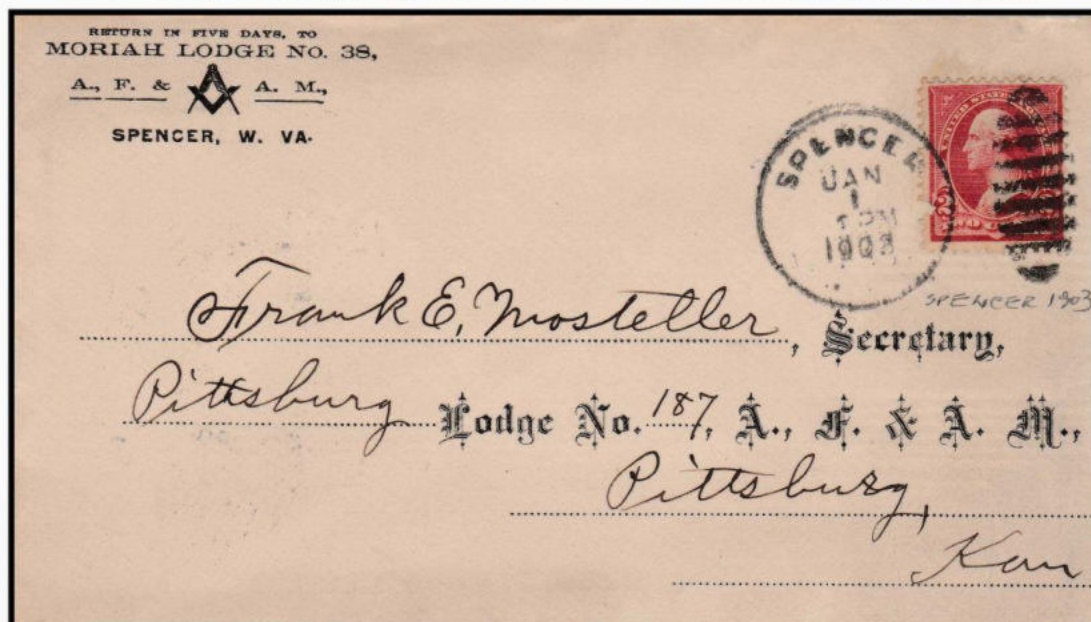 RETURN IN FIVE DAYS, TO
MORIAH LODGE NO. 38,
A., F. & A. M.,
SPENCER, W. VA.
SPENCER
JAN
1
PM
UNITED STATES
SPENCER 1903
Frank E. Mosteller, Secretary,
Pittsburg Lodge No. 187, A., F. & A. M.,
Pittsburg,
Kan